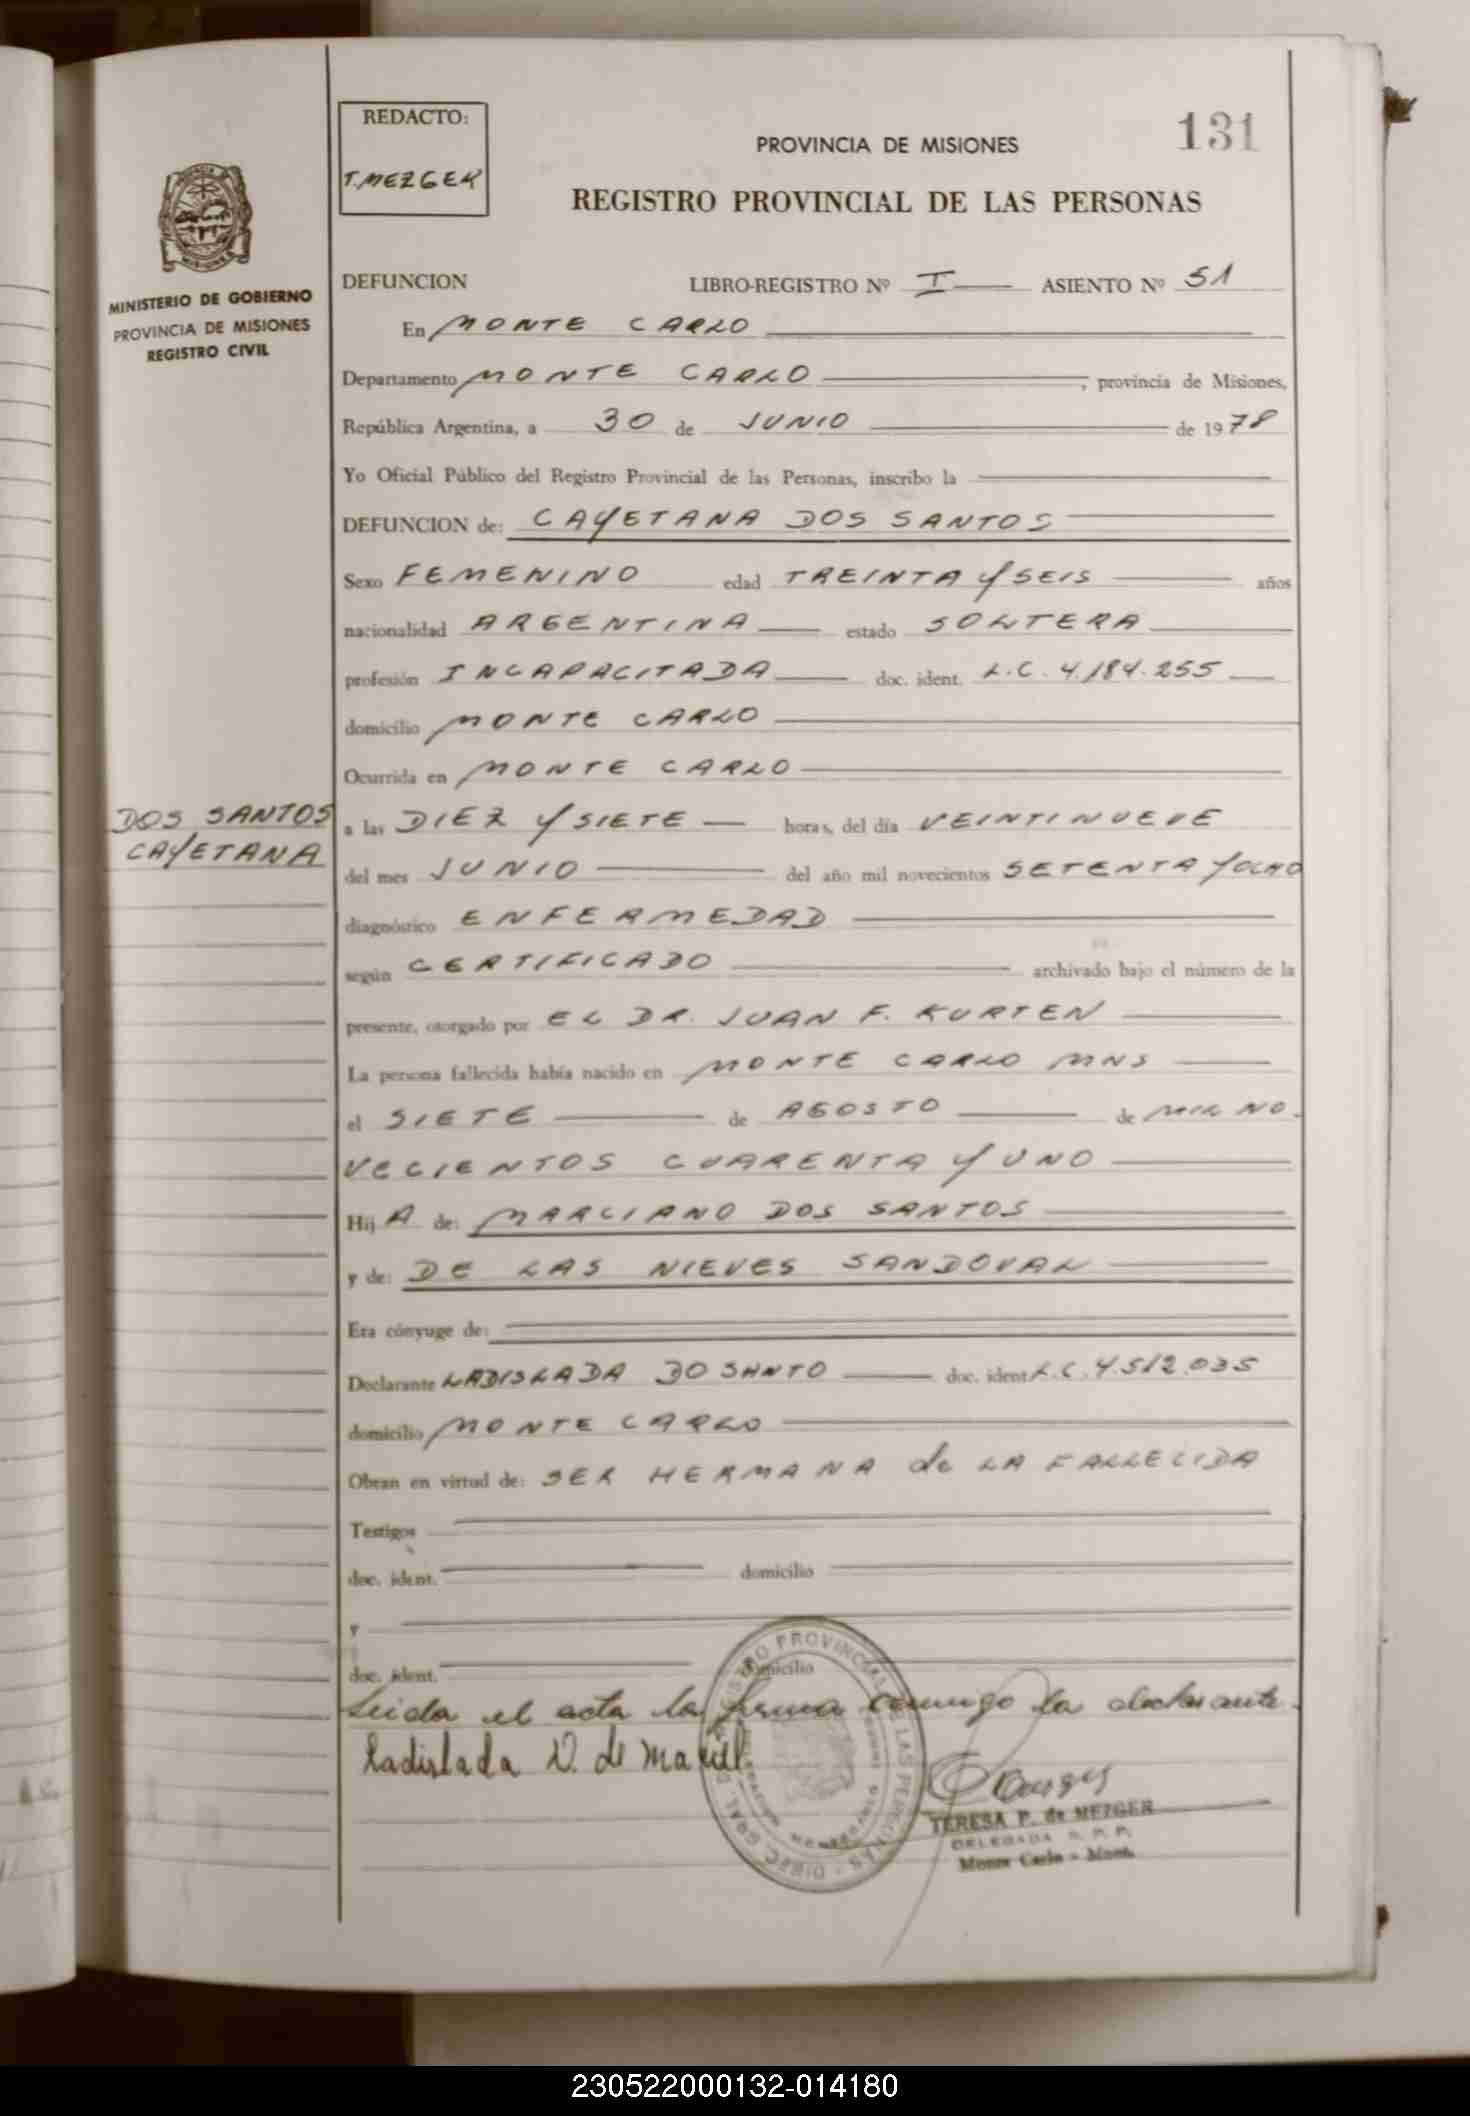 REDACTO:
T. MEZGER
131
PROVINCIA DE MISIONES
REGISTRO PROVINCIAL DE LAS PERSONAS
MINISTERIO DE GOBIERNO
PROVINCIA DE MISIONES
REGISTRO CIVIL
DEFUNCION LIBRO-REGISTRO Nº I ASIENTO Nº 51
En MONTE CARLO
Departamento MONTE CARLO, provincia de Misiones,
República Argentina, a 30 de JUNIO de 1978
Yo Oficial Público del Registro Provincial de las Personas, inscribo la
DEFUNCION de: CAYETANA DOS SANTOS
Sexo FEMENINO edad TREINTA Y SEIS años
nacionalidad ARGENTINA estado SOLTERA
profesión INCAPACITADA doc. ident. L.C. 4.184.255
domicilio MONTE CARLO
Ocurrida en MONTE CARLO
DOS SANTOS
CAYETANA
a las DIEZ Y SIETE horas, del día VEINTINUEVE
del mes JUNIO del año mil novecientos SETENTA Y OCHO
diagnóstico ENFERMEDAD
según CERTIFICADO archivado bajo el número de la
presente, otorgado por EL DR. JUAN F. KURTEN
La persona fallecida había nacido en MONTE CARLO MNS
el SIETE de AGOSTO de MIL NO-
VECIENTOS CUARENTA Y UNO
Hij A de: MARCIANO DOS SANTOS
y de: DE LAS NIEVES SANDOVAL
Era cónyuge de:
Declarante LADISLADA DO SANTO doc. ident L.C. 4.512.035
domicilio MONTE CARLO
Obran en virtud de: SER HERMANA de LA FALLECIDA
Testigos
doc. ident. domicilio
y
doc. ident. domicilio
Leida el acta la firma conmigo la declarante.
Ladislada D. de Maciel
TERESA P. de MEZGER
DELEGADA R. P. P.
Monte Carlo - Mnes.
230522000132-014180